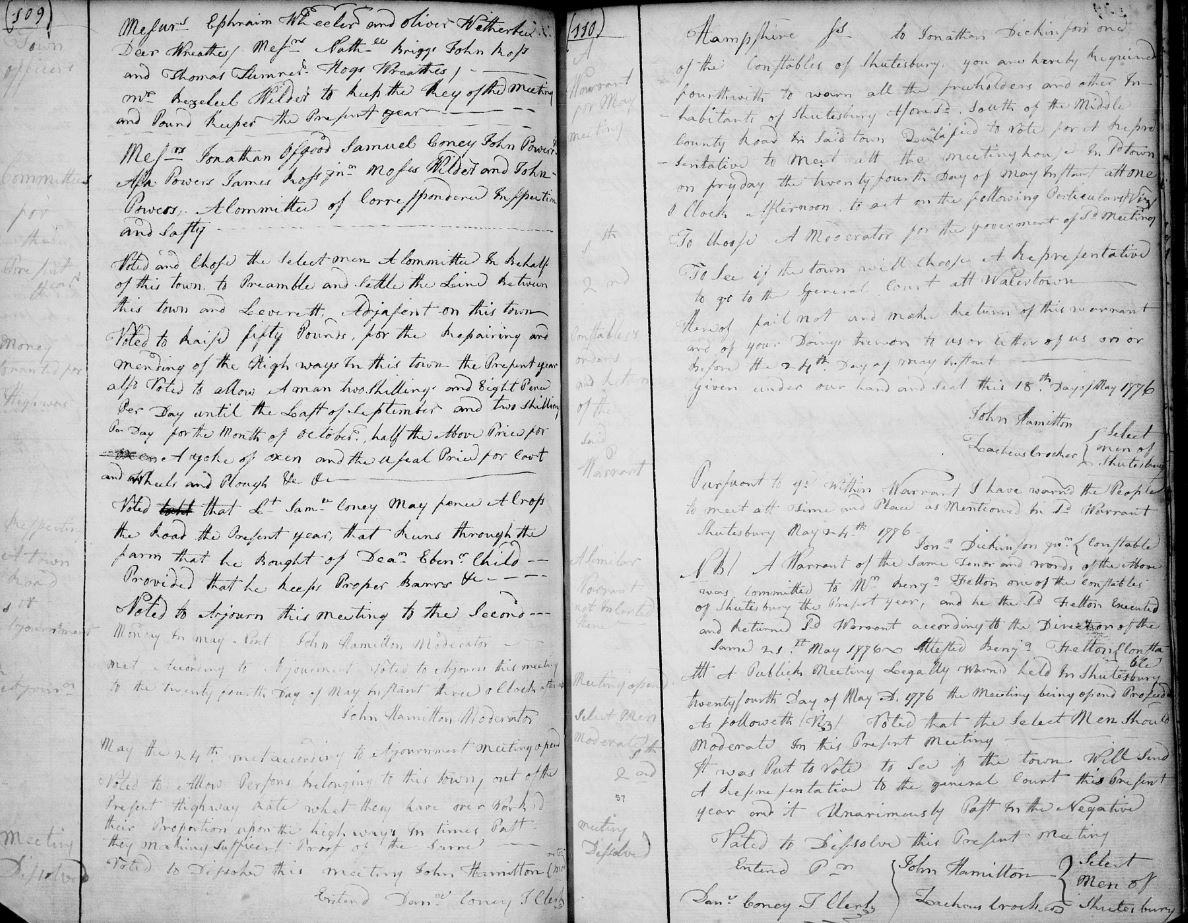 (109)
Town
officers
Committees
for
Present
year
Money
Granted for
Highways
Meeting
Dissolved
Mesurs Ephraim Wheeler and oliver Wetherbee
Dear Wreathes/ Mesrs Nathll Briggs John Ross
and Thomas Sumner Hogs Wreathes/
mr Bezeleel Wilder to keep the key of the Meeting
and Pound keeper the Present year
Mesrs Jonathan Osgood Samuel Coney John Powers
Asa Powers James Ross Jnr Moses Wilder and John
Powers. A Committee of Correspondence Inspection
and Safty
Voted and Chose the Select men A Committee In Behalf
of this town to Preamble and Settle the Line Between
this town and Leverett, Adjasent on this town
Voted to Raise fifty Pounds, for the Repairing and
mending of the High ways In this town the Present year
also Voted to allow A man two Shillings and Eight Pence
Per Day until the Last of September and two Shilling
Per Day for the Month of October, half the Above Price for
A yoke of oxen and the Useal Price for Cart
and wheels and Plough &c &c
Voted that Lt Samll Coney May fence A Cross
the Road the Present year, that Runs through the
farm that he Bought of Dean Ebenr Child
Provided that he keeps Proper Barrs &c
Voted to Adjourn this meeting to the Second
Monday In may Next John Hamilton Moderator
met according to Adjourment Voted to Adjourn this meeting
to the twenty fourth Day of May Instant three o Clock
John Hamilton Moderator
May the 24th met according to Adjournment meeting opend
Voted to Allow Persons belonging to this town, out of the
Present Highway Rate what they have over workd
their Proportion upon the high ways In times Past
they making Sufficent Proof of the Same
Voted to Dissolve this meeting John Hamilton
Enterd Danll Coney T Clerk
(110)
A
Warrant
for May
meeting
1 th
2 nd
Constables
orders
and Return
of the
Said
Warrant
A Similar
Warrant
not Inserted
here
Meeting opend
Select Men
Moderate
2 and
meeting
Dissolved
Hampshire Ss. to Jonathan Dickinson one
of the Constables of Shutesbury. you are hereby Required
fourthwith to warn all the freeholders and other In-
habitants of Shutesbury Aforesd. South of the Middle
County Road In Said town Qualified to Vote for A Repre
-sentative to Meet att the meeting house In Sd town
on fryday the twenty fourth Day of May Instant att one
o Clock Afternoon, to act on the following Particulars (Viz)
To Choose A Moderator for the goverment of Sd Meeting
To See if the town will Choose A Representative
to go to the general Court att Watertown
Hereof fail not and make Return of this warrant
and of your Doings thereon to us or Either of us on or
Before the 24th Day of may Instant
Given under our hand and Seal this 18th Day of May 1776
John Hamilton
Zacheus Crocker
Select
men of
Shutesbury
Pursuant to ye Within Warrant I have warnd the People
to meet att time and Place as Mentioned In Sd Warrant
Shutesbury May 24th 1776
Jona Dickinson Junr Constable
N B/ A Warrant of the Same Tenor and words of the above
was committed to Mr Benja Felton one of the Constables
of Shutesbury the Present year, and he the Sd Felton Executed
and Returnd Sd Warrant according to the Direction of the
Same 21st May 1776 Attested Benja Felton Consta
ble
Att A Publick Meeting Legally Warnd held In Shutesbury
twenty fourth Day of May AD. 1776 the Meeting being opend Proceded
As followeth (Viz) Voted that the Select Men Should
Moderate In this Present Meeting
It was Put to Vote to See if the town Will Send
A Representative to the general Court this Present
year and it Unanimously Past In the Negative
Voted to Dissolve this Present meeting
Enterd Pr
Danll Coney T Clerk
John Hamilton
Zacheus Crocker
Select
Men of
Shutesbury